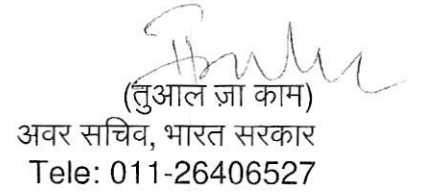 (तुआल ज़ा काम)
अवर सचिव, भारत सरकार
Tele: 011-26406527